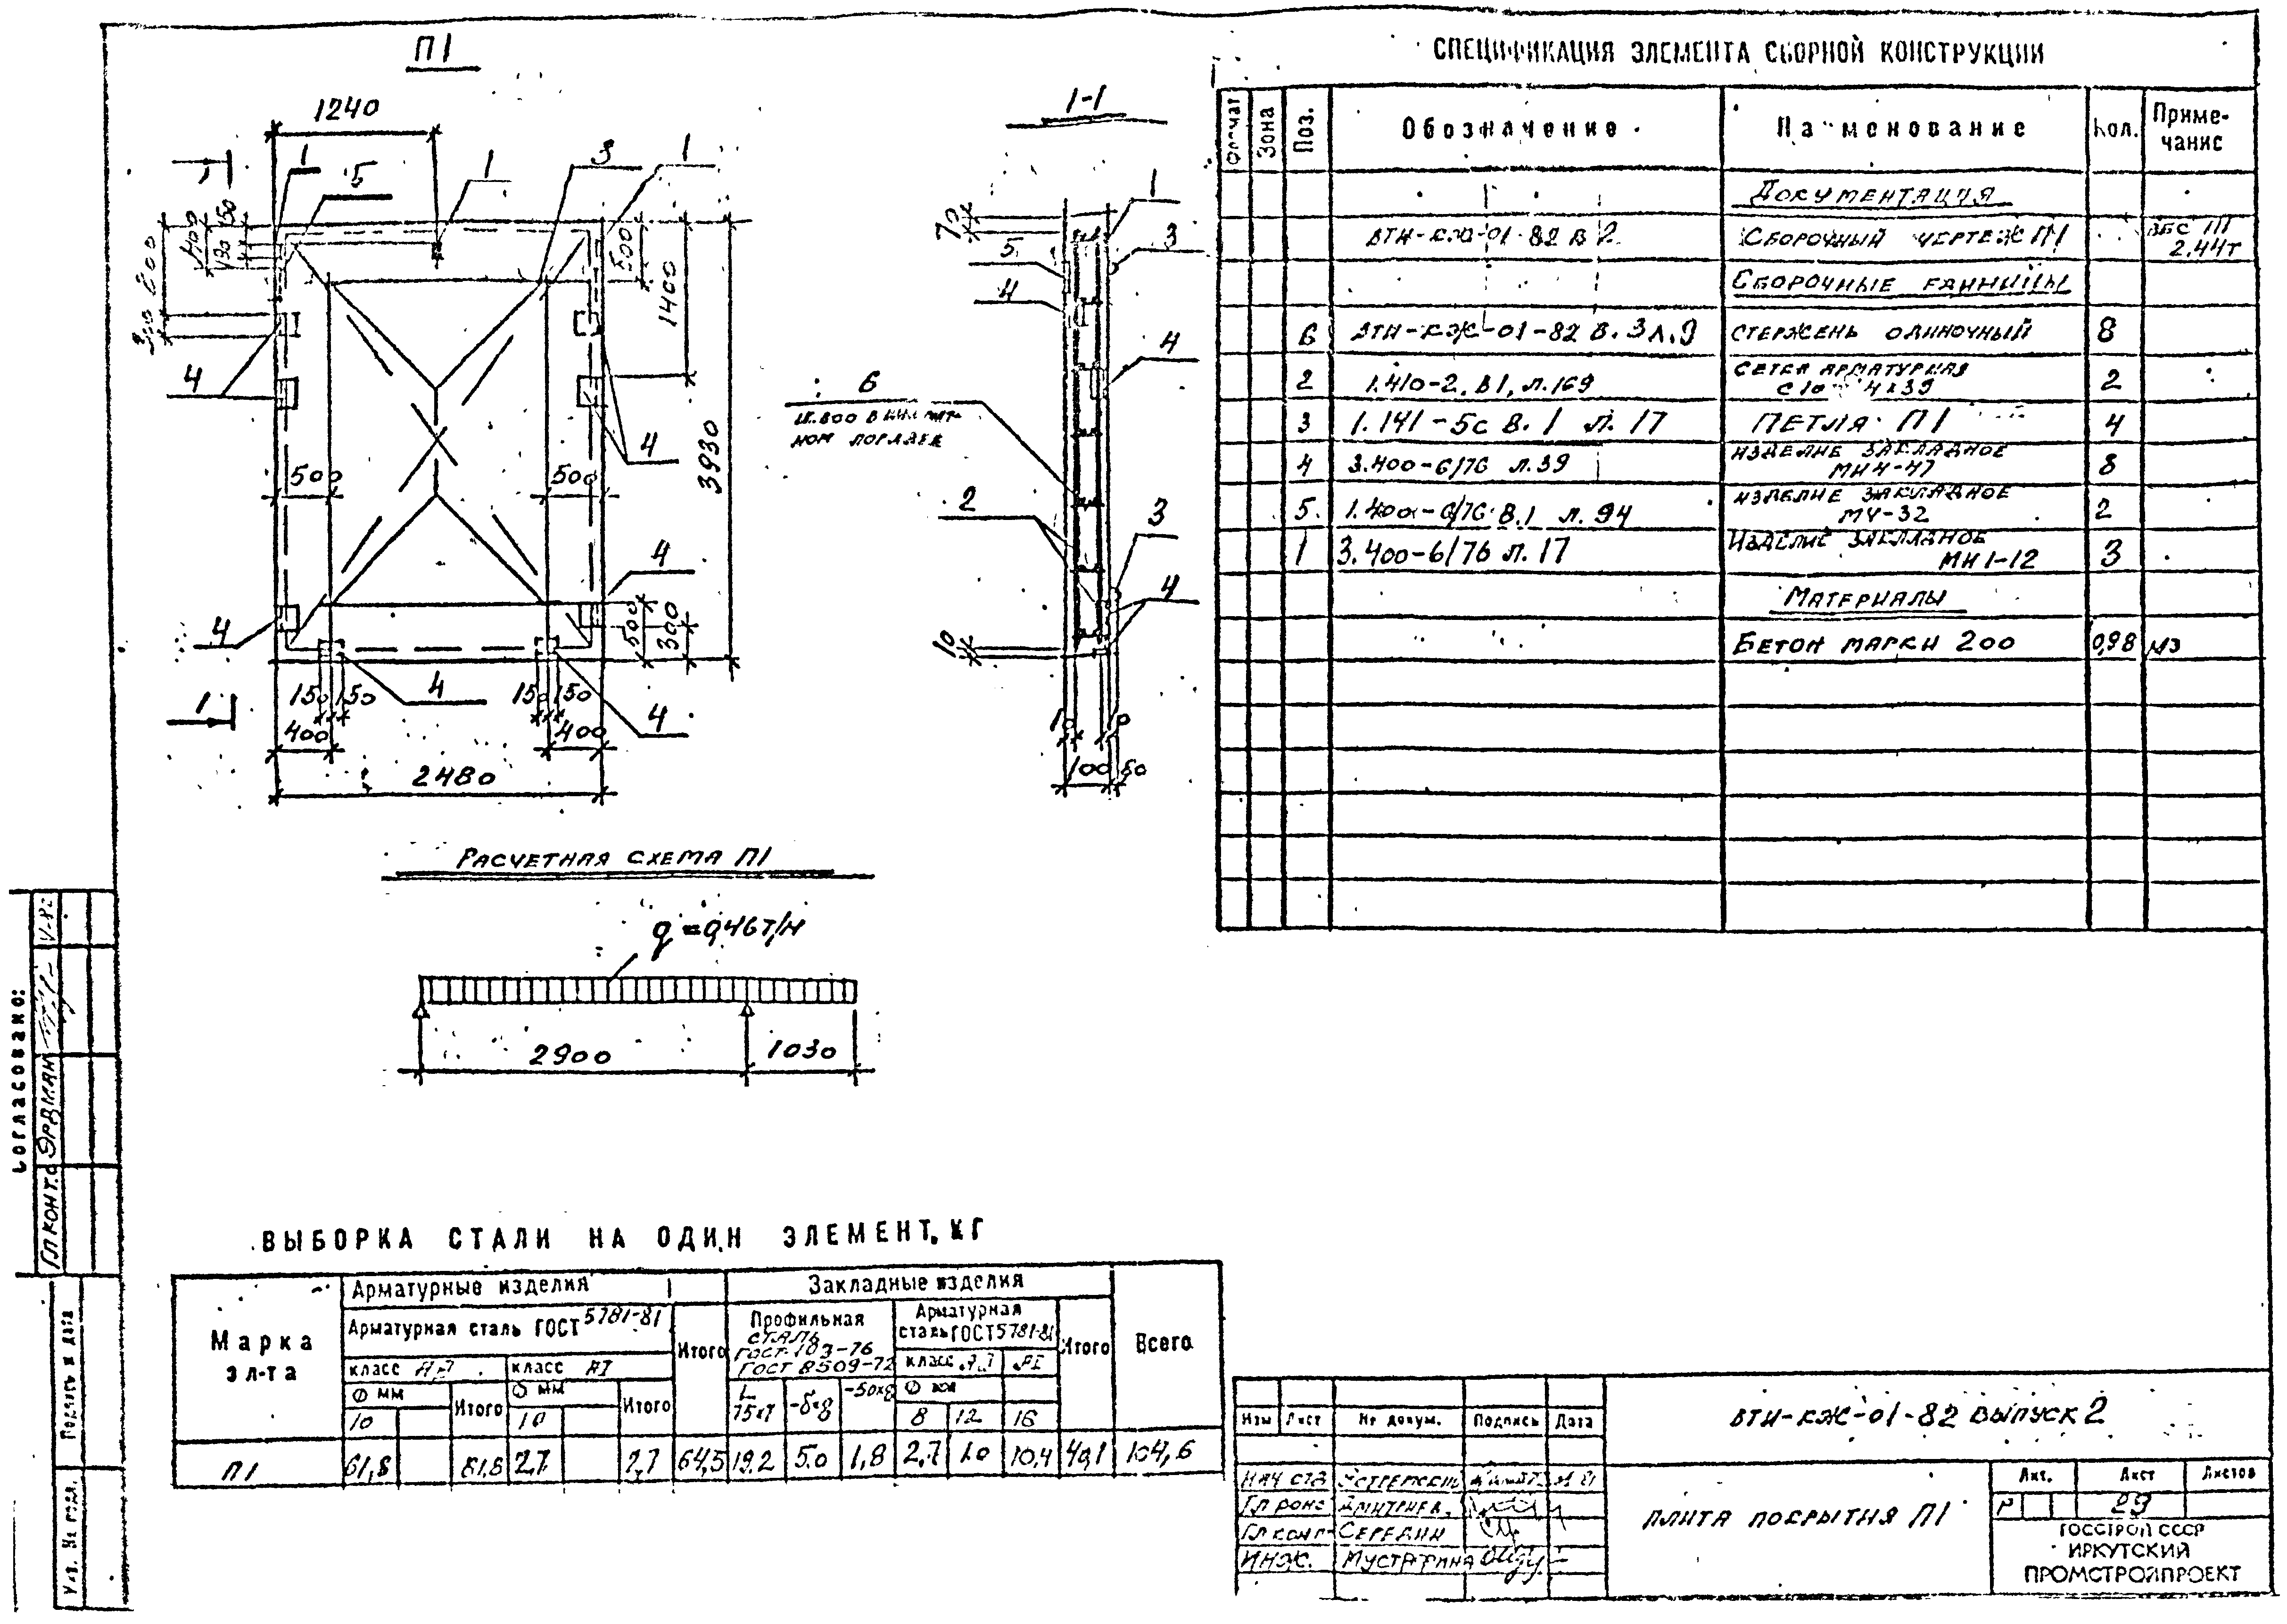 П1
1240
1
5
1
3
1
150
400
190
800
300
500
1400
3930
4
4
500
500
4
4
500
300
4
4
150
150
150
150
400
400
2480
1
1-1
70
1
5
3
4
4
6
2
3
4
10
10
100
РАСЧЕТНАЯ СХЕМА П1
q=0,46т/м
2900
1030
СПЕЦИФИКАЦИЯ ЭЛЕМЕНТА СБОРНОЙ КОНСТРУКЦИИ
Формат Зона Поз. Обозначение Наименование Кол. Примечание
ДОКУМЕНТАЦИЯ
ВТИ-КЖ-01-82 В 2 СБОРОЧНЫЙ ЧЕРТЕЖ П1 ВЕС П1 2.44т
СБОРОЧНЫЕ ЕДИНИЦЫ
6 ВТИ-КЖ-01-82 В. 3 Л. 9 СТЕРЖЕНЬ ОДИНОЧНЫЙ 8
2 1.410-2, В1, Л.169 СЕТКА АРМАТУРНАЯ 2
3 1.141-5с В. 1 Л. 17 ПЕТЛЯ П1 4
4 3.400-6/76 Л.39 ИЗДЕЛИЕ ЗАКЛАДНОЕ МН4-47 8
5. 1.400-6/76 В.1 Л. 94 ИЗДЕЛИЕ ЗАКЛАДНОЕ МУ-32 2
1 3.400-6/76 Л. 17 ИЗДЕЛИЕ ЗАКЛАДНОЕ МН1-12 3
МАТЕРИАЛЫ
БЕТОН МАРКИ 200 0,98 м3
ВЫБОРКА СТАЛИ НА ОДИН ЭЛЕМЕНТ, КГ
Марка эл-та
Арматурные изделия
Закладные изделия
Всего
Арматурная сталь ГОСТ 5781-81
Итого
Профильная сталь ГОСТ 103-76 ГОСТ 8509-72
Арматурная сталь ГОСТ 5781-81
Итого
класс
класс АI
класс
АI
Ф мм
Итого
Ф мм
Итого
-50х8
Ф мм
10
10
8
12
16
П1 61,8 61,8 2,7 2,7 64,5 19,2 5.0 1,8 2,7 1.0 10,4 40,1 104,6
Согласовано:
ГЛ КОНТ.
ЭРДМАН
Подпись и дата
Инв. № подл.
Изм Лист № докум. Подпись Дата
ГЛ КОНТ СЕРЕДИН
ИНЖ.
ВТИ-КЖ-01-82 ВЫПУСК 2
ПЛИТА ПОКРЫТИЯ П1
Лит. Лист Листов
Р 29
ГОССТРОЙ СССР
ИРКУТСКИЙ
ПРОМСТРОЙПРОЕКТ